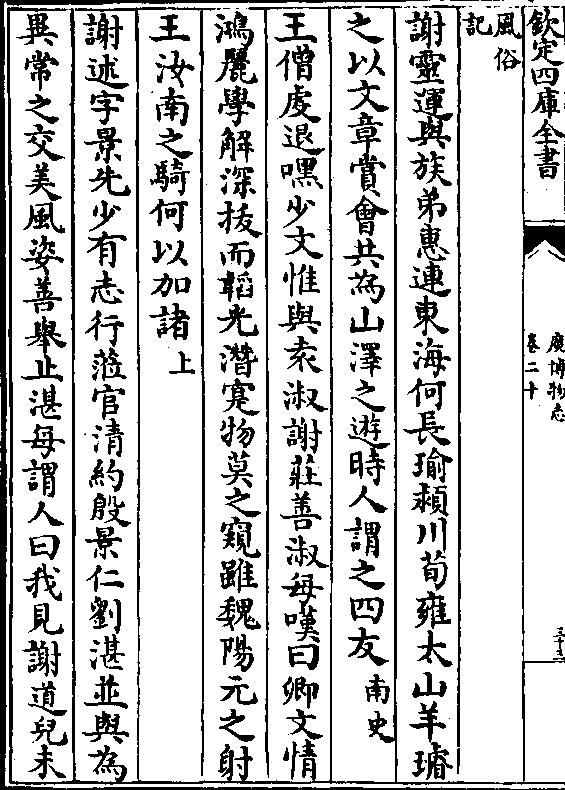 欽定四庫全書
廣博物志
卷二十
三十三
風俗
記
謝靈運與族弟惠連東海何長瑜潁川荀雍太山羊璿
之以文章賞會共為山澤之遊時人謂之四友南史
王僧虔退嘿少文惟與袁淑謝莊善淑每嘆曰卿文情
鴻麗學解深拔而韜光潛寔物莫之窺雖魏陽元之射
王汝南之騎何以加諸上
謝述字景先少有志行蒞官清約殷景仁劉湛並與為
異常之交美風姿善舉止湛每謂人曰我見謝道兒未